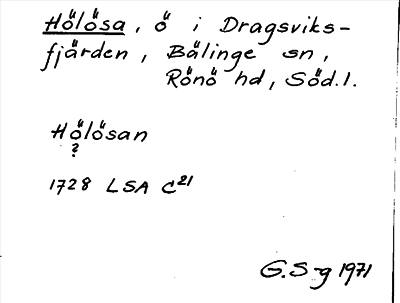 Hölösa, ö i Dragsviks-
fjärden, Bälinge sn,
Rönö hd, Söd.l.
Hölösan
?
1728 LSA C21
G.S-g 1971